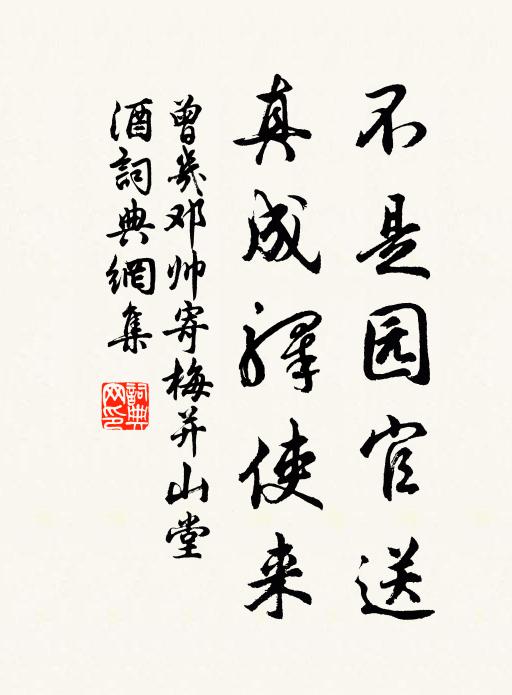 不是园官送
真成驛使来
曾几邓帅寄梅并山堂
酒詞典網集
詞典
网印